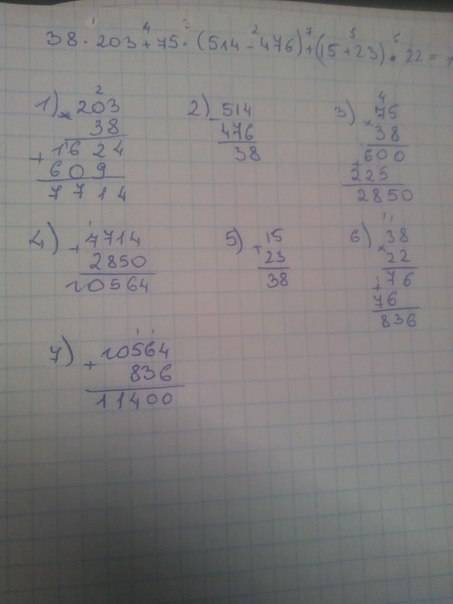 38 · 203 + 75 · (514 - 476) + (15 + 23) · 22 =
1) × 203
38
+ 1624
609
7714
2) - 514
476
38
3) × 75
38
600
225
2850
4) + 7714
2850
10564
5) + 15
23
38
6) × 38
22
+ 76
76
836
7) + 10564
836
11400